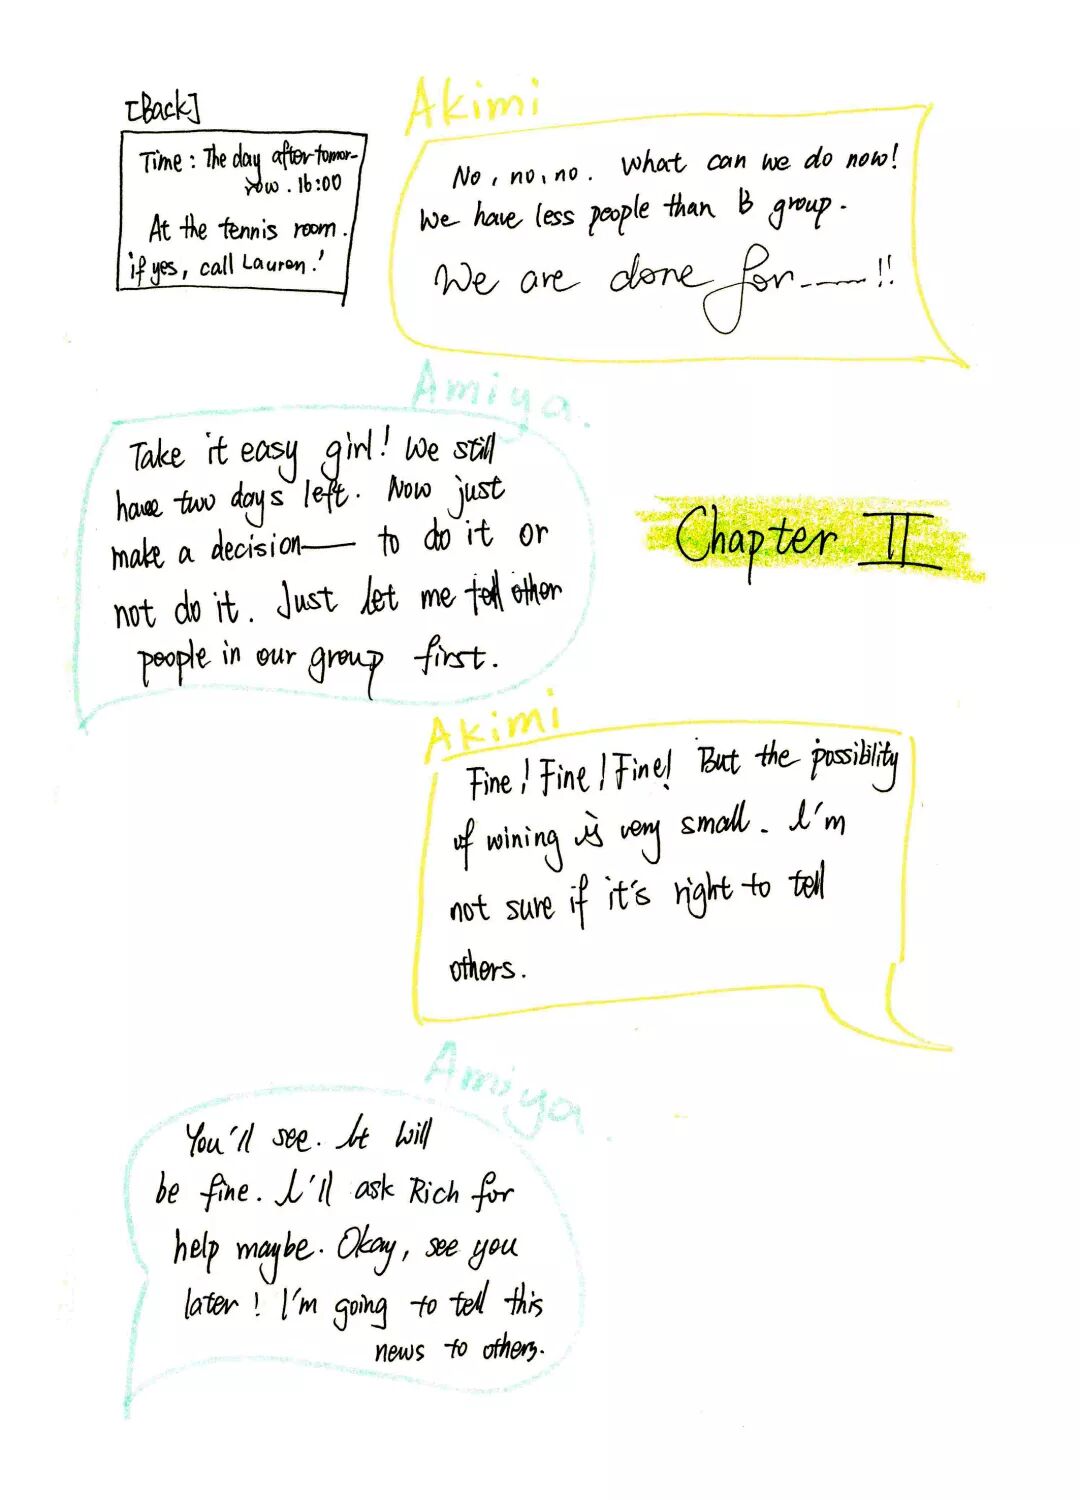 [Back]
Time : The day after tomor-
row . 16:00
At the tennis room .
if yes, call Lauren.'
Akimi
No, no, no. What can we do now!
We have less people than B group.
We are done for——!!
Amiya.
Take it easy girl! We still
have two days left. Now just
make a decision—— to do it or
not do it. Just let me tell other
people in our group first.
Chapter II
Akimi
Fine! Fine! Fine! But the possibility
of wining is very small. I'm
not sure if it's right to tell
others.
Amiya.
You'll see. It will
be fine. I'll ask Rich for
help maybe. Okay, see you
later! I'm going to tell this
news to others.